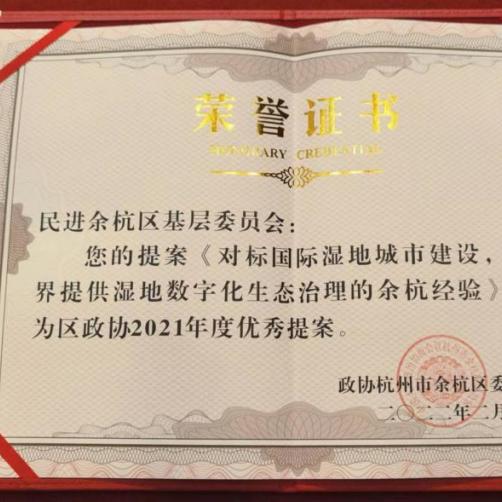 荣誉证书
HONORARY CREDENTIAL
民进余杭区基层委员会：
您的提案《对标国际湿地城市建设，
界提供湿地数字化生态治理的余杭经验》
为区政协2021年度优秀提案。
政协杭州市余杭区委
二〇二二年二月